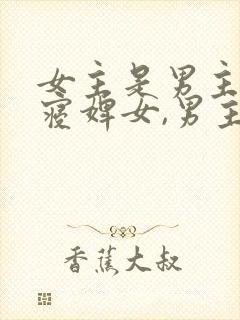 女主是男主
寝婢女,男主
香蕉大叔